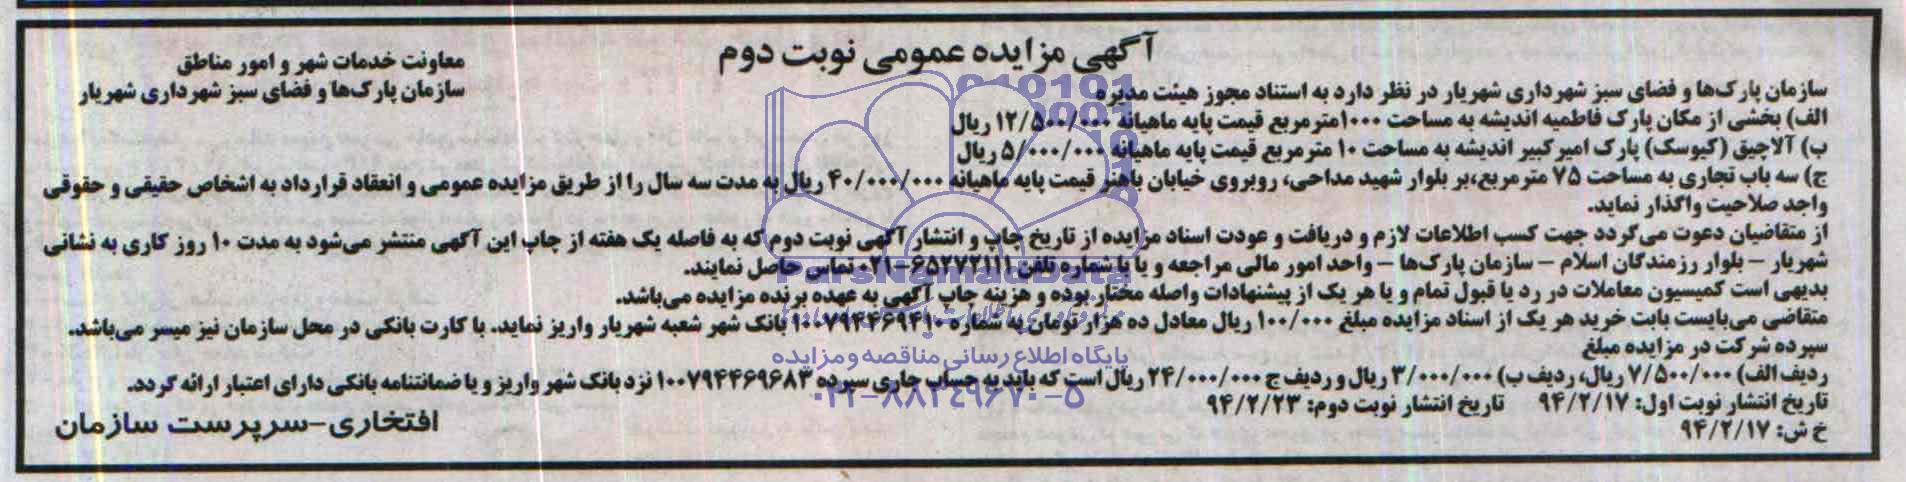 آگهی مزایده عمومی نوبت دوم
معاونت خدمات شهر و امور مناطق
سازمان پارک‌ها و فضای سبز شهرداری شهریار
سازمان پارک‌ها و فضای سبز شهرداری شهریار در نظر دارد به استناد مجوز هیئت مدیره
الف) بخشی از مکان پارک فاطمیه اندیشه به مساحت ۱۰۰۰مترمربع قیمت پایه ماهیانه ۱۲/۵۰۰/۰۰۰ ریال
ب) آلاچیق (کیوسک) پارک امیرکبیر اندیشه به مساحت ۱۰ مترمربع قیمت پایه ماهیانه ۵/۰۰۰/۰۰۰ ریال
ج) سه باب تجاری به مساحت ۷۵ مترمربع،بر بلوار شهید مداحی، روبروی خیابان باهنر قیمت پایه ماهیانه ۴۰/۰۰۰/۰۰۰ ریال به مدت سه سال را از طریق مزایده عمومی و انعقاد قرارداد به اشخاص حقیقی و حقوقی
واجد صلاحیت واگذار نماید.
از متقاضیان دعوت می‌گردد جهت کسب اطلاعات لازم و دریافت و عودت اسناد مزایده از تاریخ چاپ و انتشار آگهی نوبت دوم که به فاصله یک هفته از چاپ این آگهی منتشر می‌شود به مدت ۱۰ روز کاری به نشانی
شهریار – بلوار رزمندگان اسلام – سازمان پارک‌ها – واحد امور مالی مراجعه و یا با شماره تلفن ۶۵۲۷۲۱۱۱-۰۲۱ تماس حاصل نمایند.
بدیهی است کمیسیون معاملات در رد یا قبول تمام و یا هر یک از پیشنهادات واصله مختار بوده و هزینه چاپ آگهی به عهده برنده مزایده می‌باشد.
متقاضی می‌بایست بابت خرید هر یک از اسناد مزایده مبلغ ۱۰۰/۰۰۰ ریال معادل ده هزار تومان به شماره ۱۰۰۷۹۴۴۶۹۴۱۰ بانک شهر شعبه شهریار واریز نماید. با کارت بانکی در محل سازمان نیز میسر می‌باشد.
سپرده شرکت در مزایده مبلغ
ردیف الف) ۷/۵۰۰/۰۰۰ ریال، ردیف ب) ۳/۰۰۰/۰۰۰ ریال و ردیف ج ۲۴/۰۰۰/۰۰۰ ریال است که باید به حساب جاری سپرده ۱۰۰۷۹۴۴۶۹۶۸۳ نزد بانک شهر واریز و یا ضمانتنامه بانکی دارای اعتبار ارائه گردد.
تاریخ انتشار نوبت اول: ۹۴/۲/۱۷ تاریخ انتشار نوبت دوم: ۹۴/۲/۲۳
خ ش: ۹۴/۲/۱۷
افتخاری-سرپرست سازمان
ParsNamadData
پایگاه اطلاع رسانی مناقصه و مزایده
۰۲۱-۸۸۳۴۹۶۷۰-۵